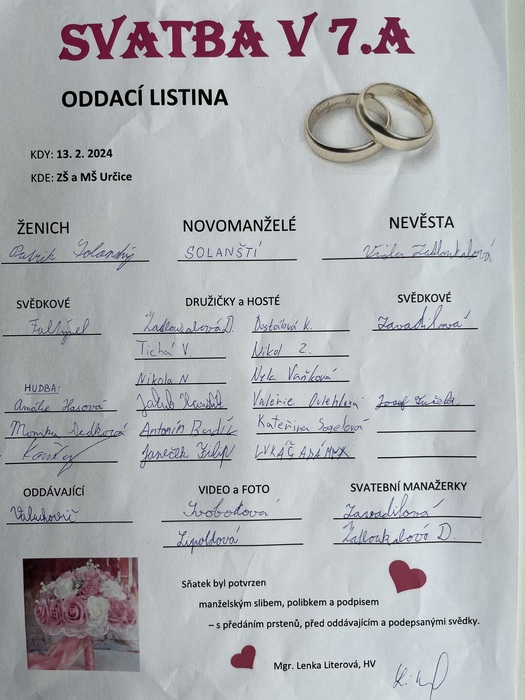 SVATBA V 7.A
ODDACÍ LISTINA
KDY: 13. 2. 2024
KDE: ZŠ a MŠ Určice
ŽENICH NOVOMANŽELÉ NEVĚSTA
Patrik Solanský SOLANŠTÍ Zatloukalová
SVĚDKOVÉ DRUŽIČKY a HOSTÉ SVĚDKOVÉ
Zatloukalová D. Dostálová K. Zavadilová
Tichá V. Nikol Z.
Nikola N Nela Vaňková
HUDBA:
Amálie Jakub Valérie Josef
Monika Antonín Kateřina
Janeček Filip LUKÁČ ADAM
ODDÁVAJÍCÍ VIDEO a FOTO SVATEBNÍ MANAŽERKY
Svobodová Zavadilová
Lipoldová Zatloukalová D.
Sňatek byl potvrzen
manželským slibem, polibkem a podpisem
– s předáním prstenů, před oddávajícím a podepsanými svědky.
Mgr. Lenka Literová, HV